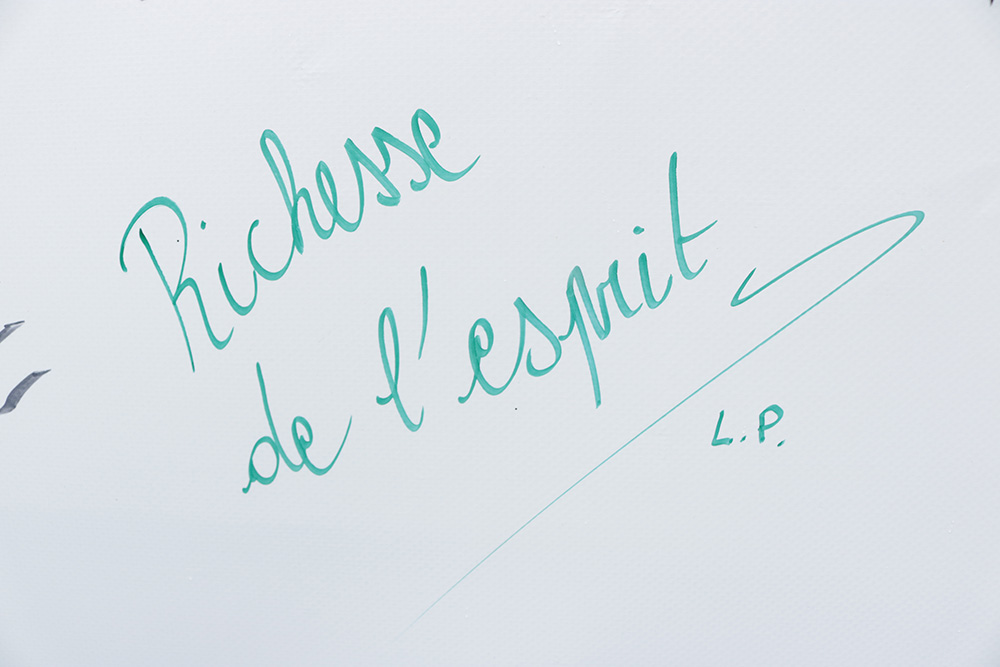 Richesse
de l'esprit
L.P.